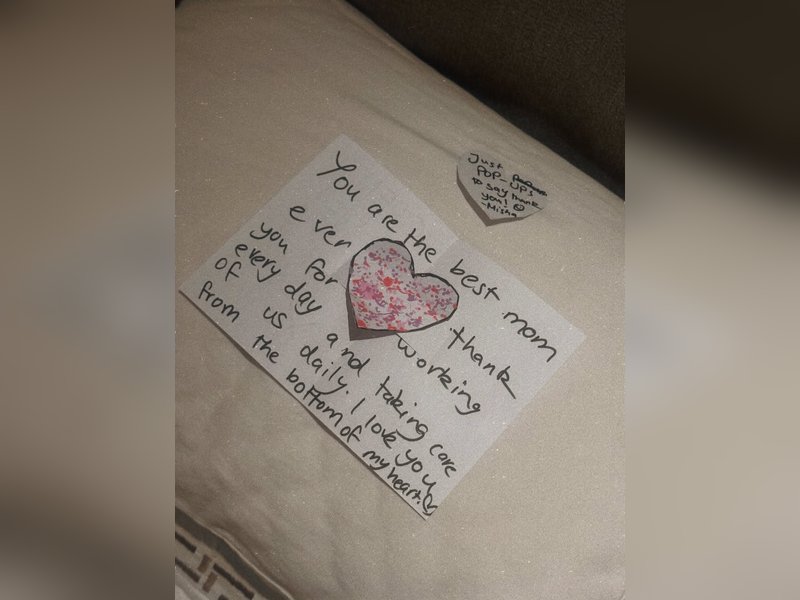 You are the best mom
ever thank
you for working
every day and taking care
of us daily. I love you
from the bottom of my heart.
Just
POP-UPS
to say thank
you!
-Misha